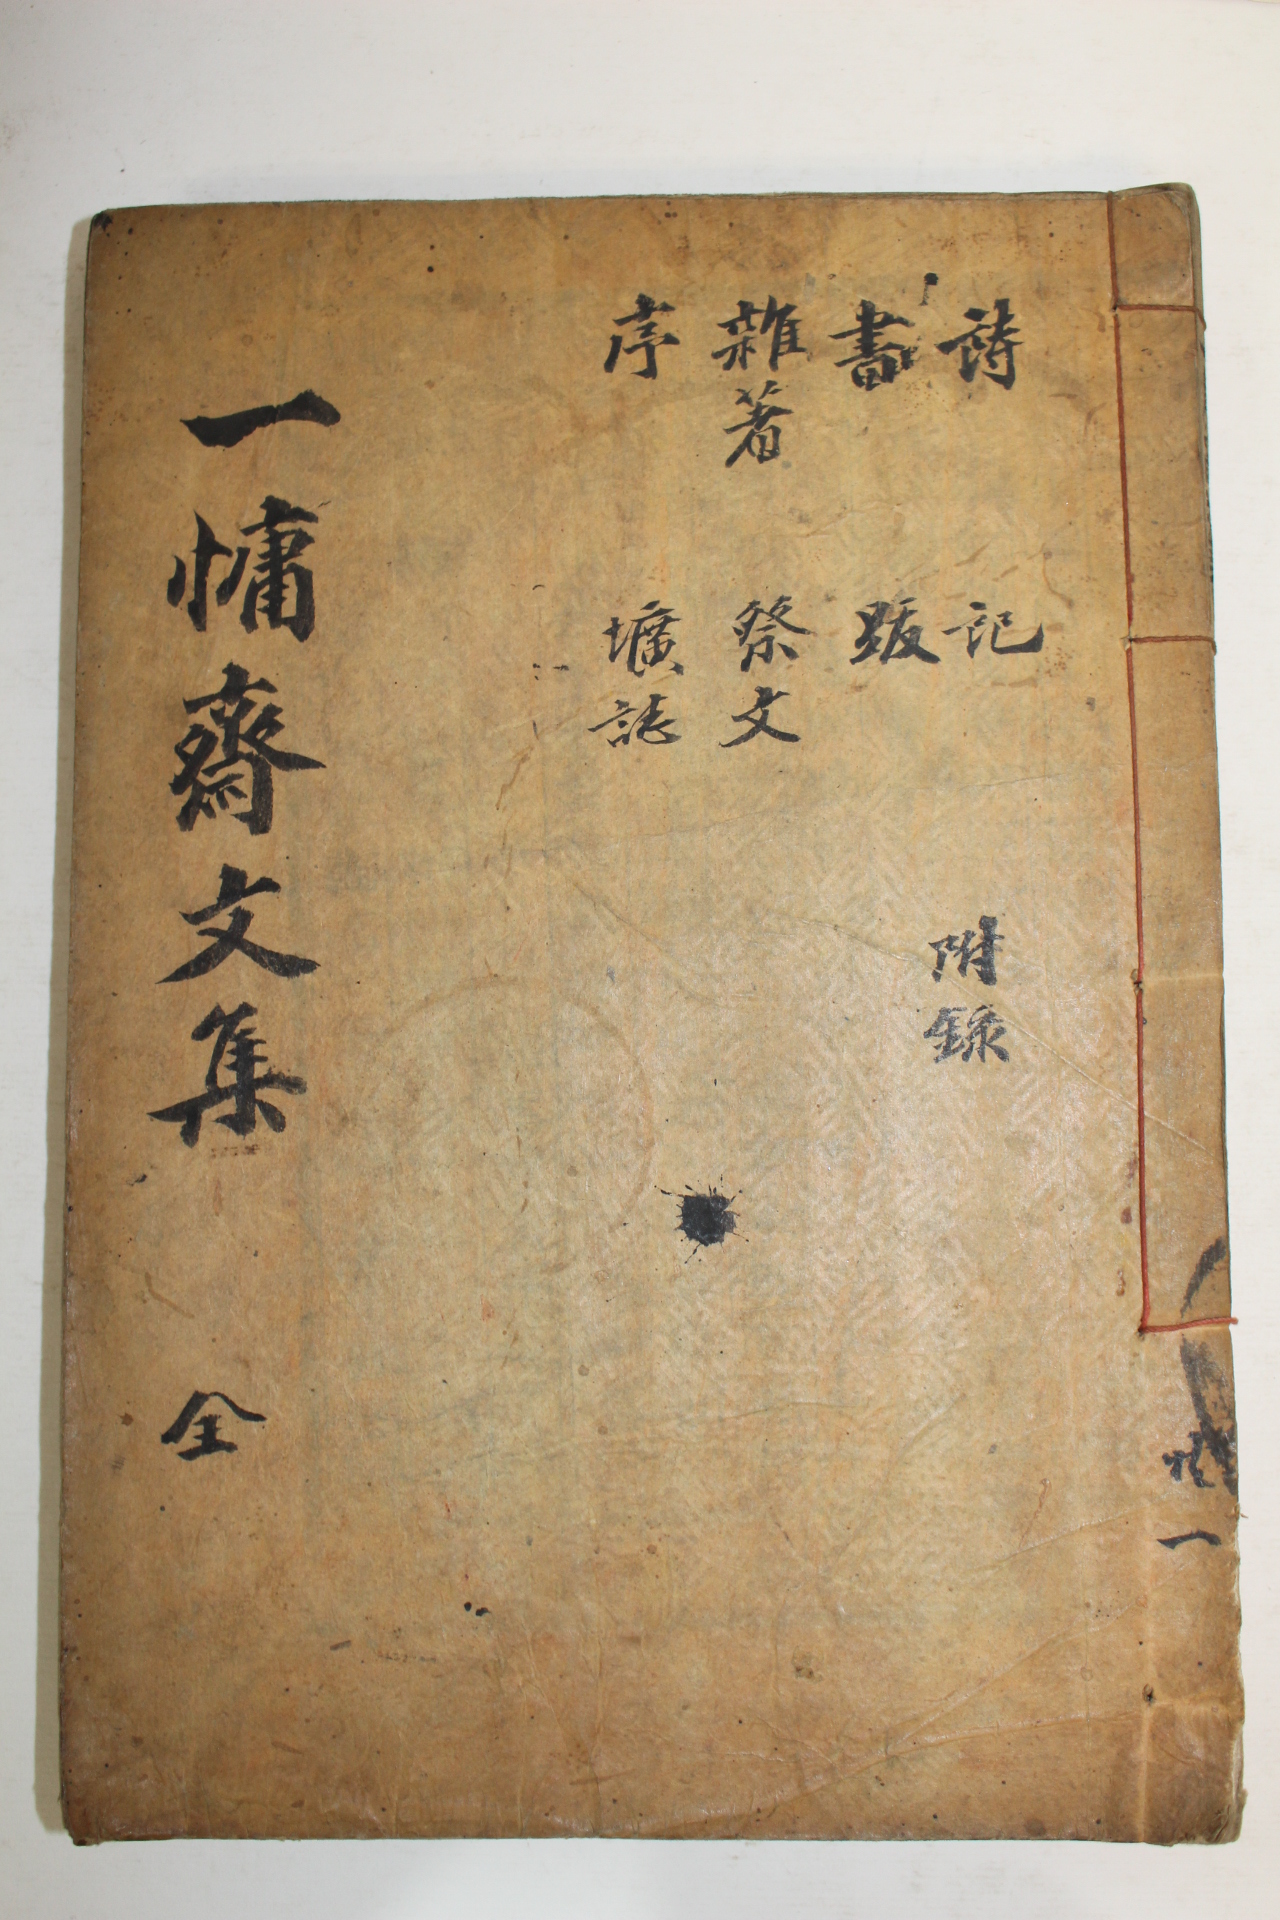 詩
書
雜著
序
記
跋
祭文
壙誌
附錄
一慵齋文集 全
一